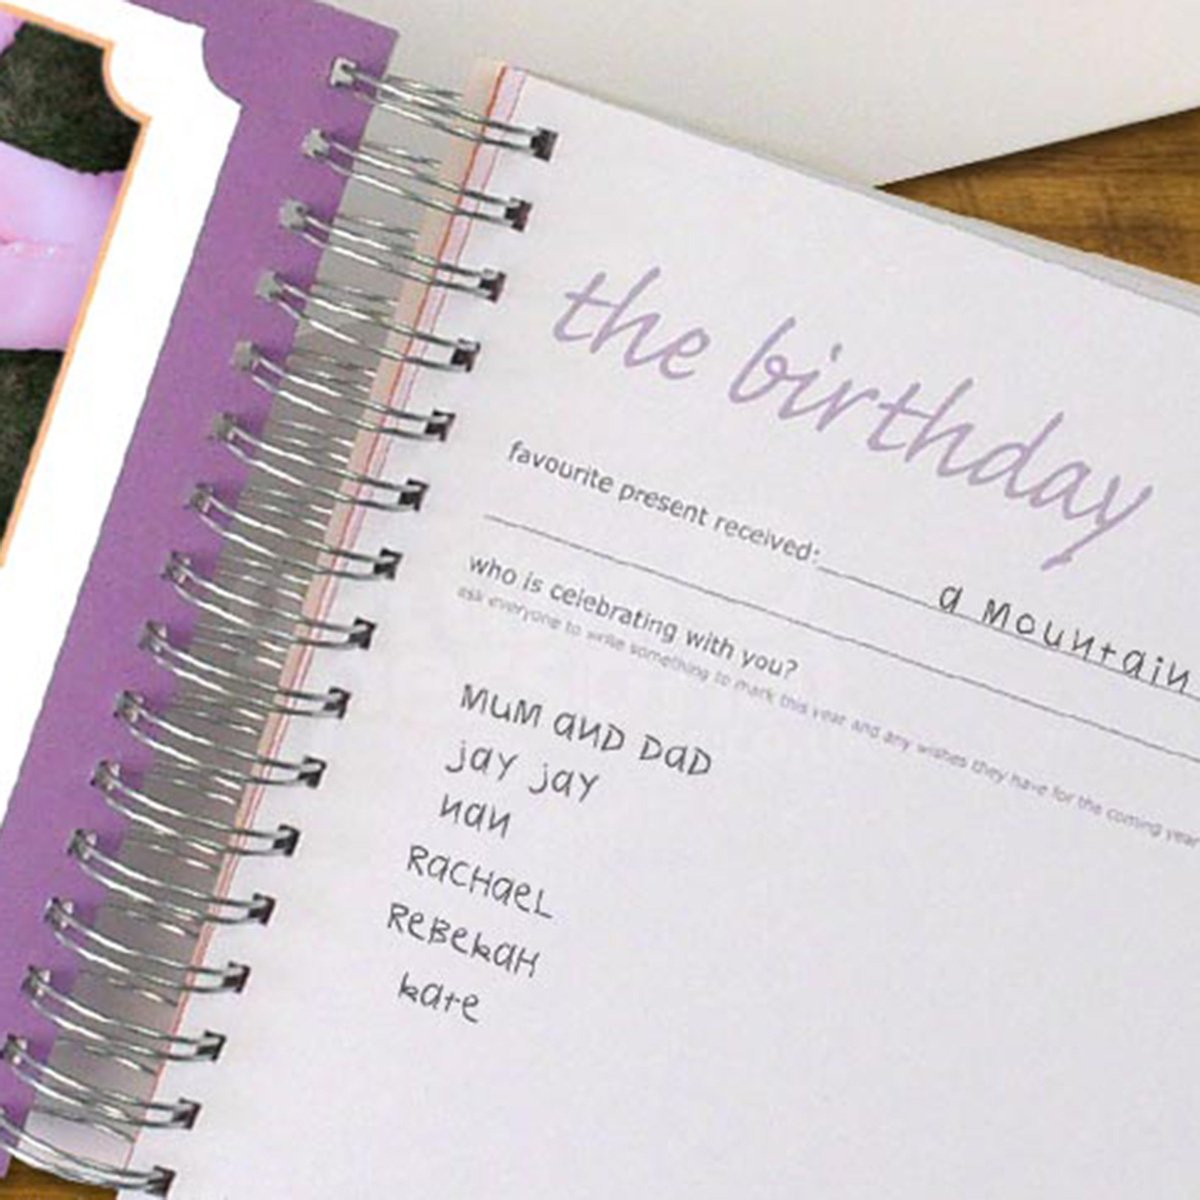 the birthday
favourite present received: a mountain
who is celebrating with you?
ask everyone to write something to mark this year and any wishes they have for the coming year
MUM and Dad
jay jay
nan
RacHaeL
ReBekaH
kate